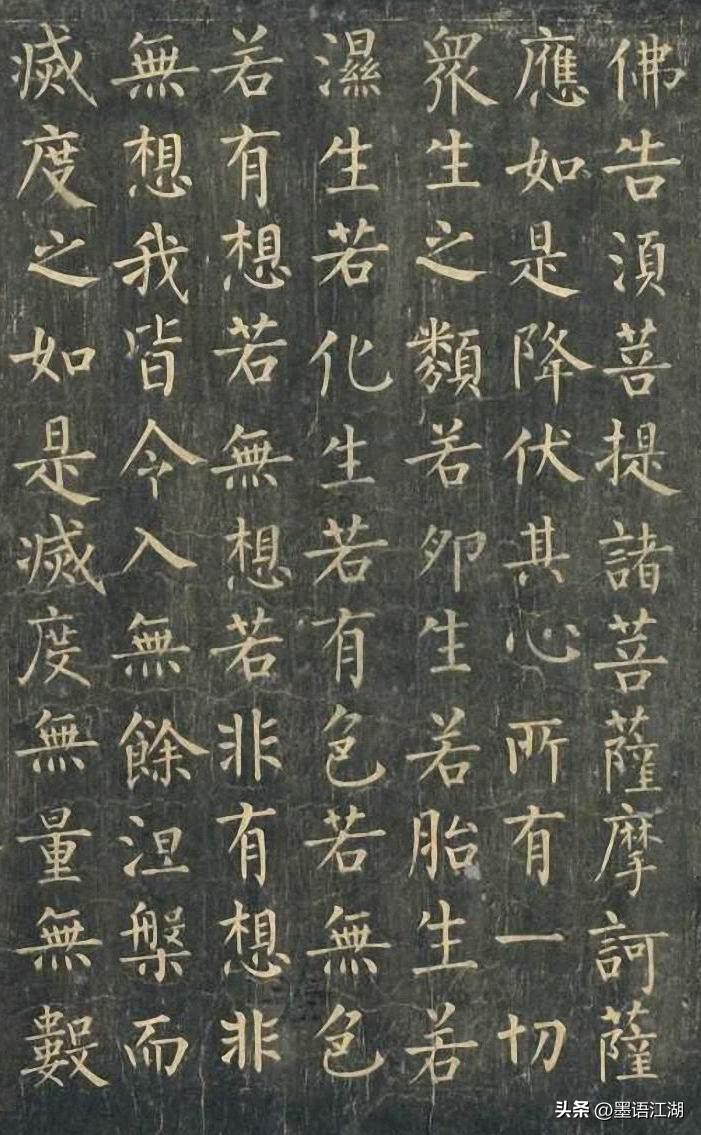 佛告須菩提諸菩薩摩訶薩
應如是降伏其心所有一切
衆生之類若卵生若胎生若
濕生若化生若有色若無色
若有想若無想若非有想非
無想我皆令入無餘涅槃而
滅度之如是滅度無量無數
头条 @墨语江湖